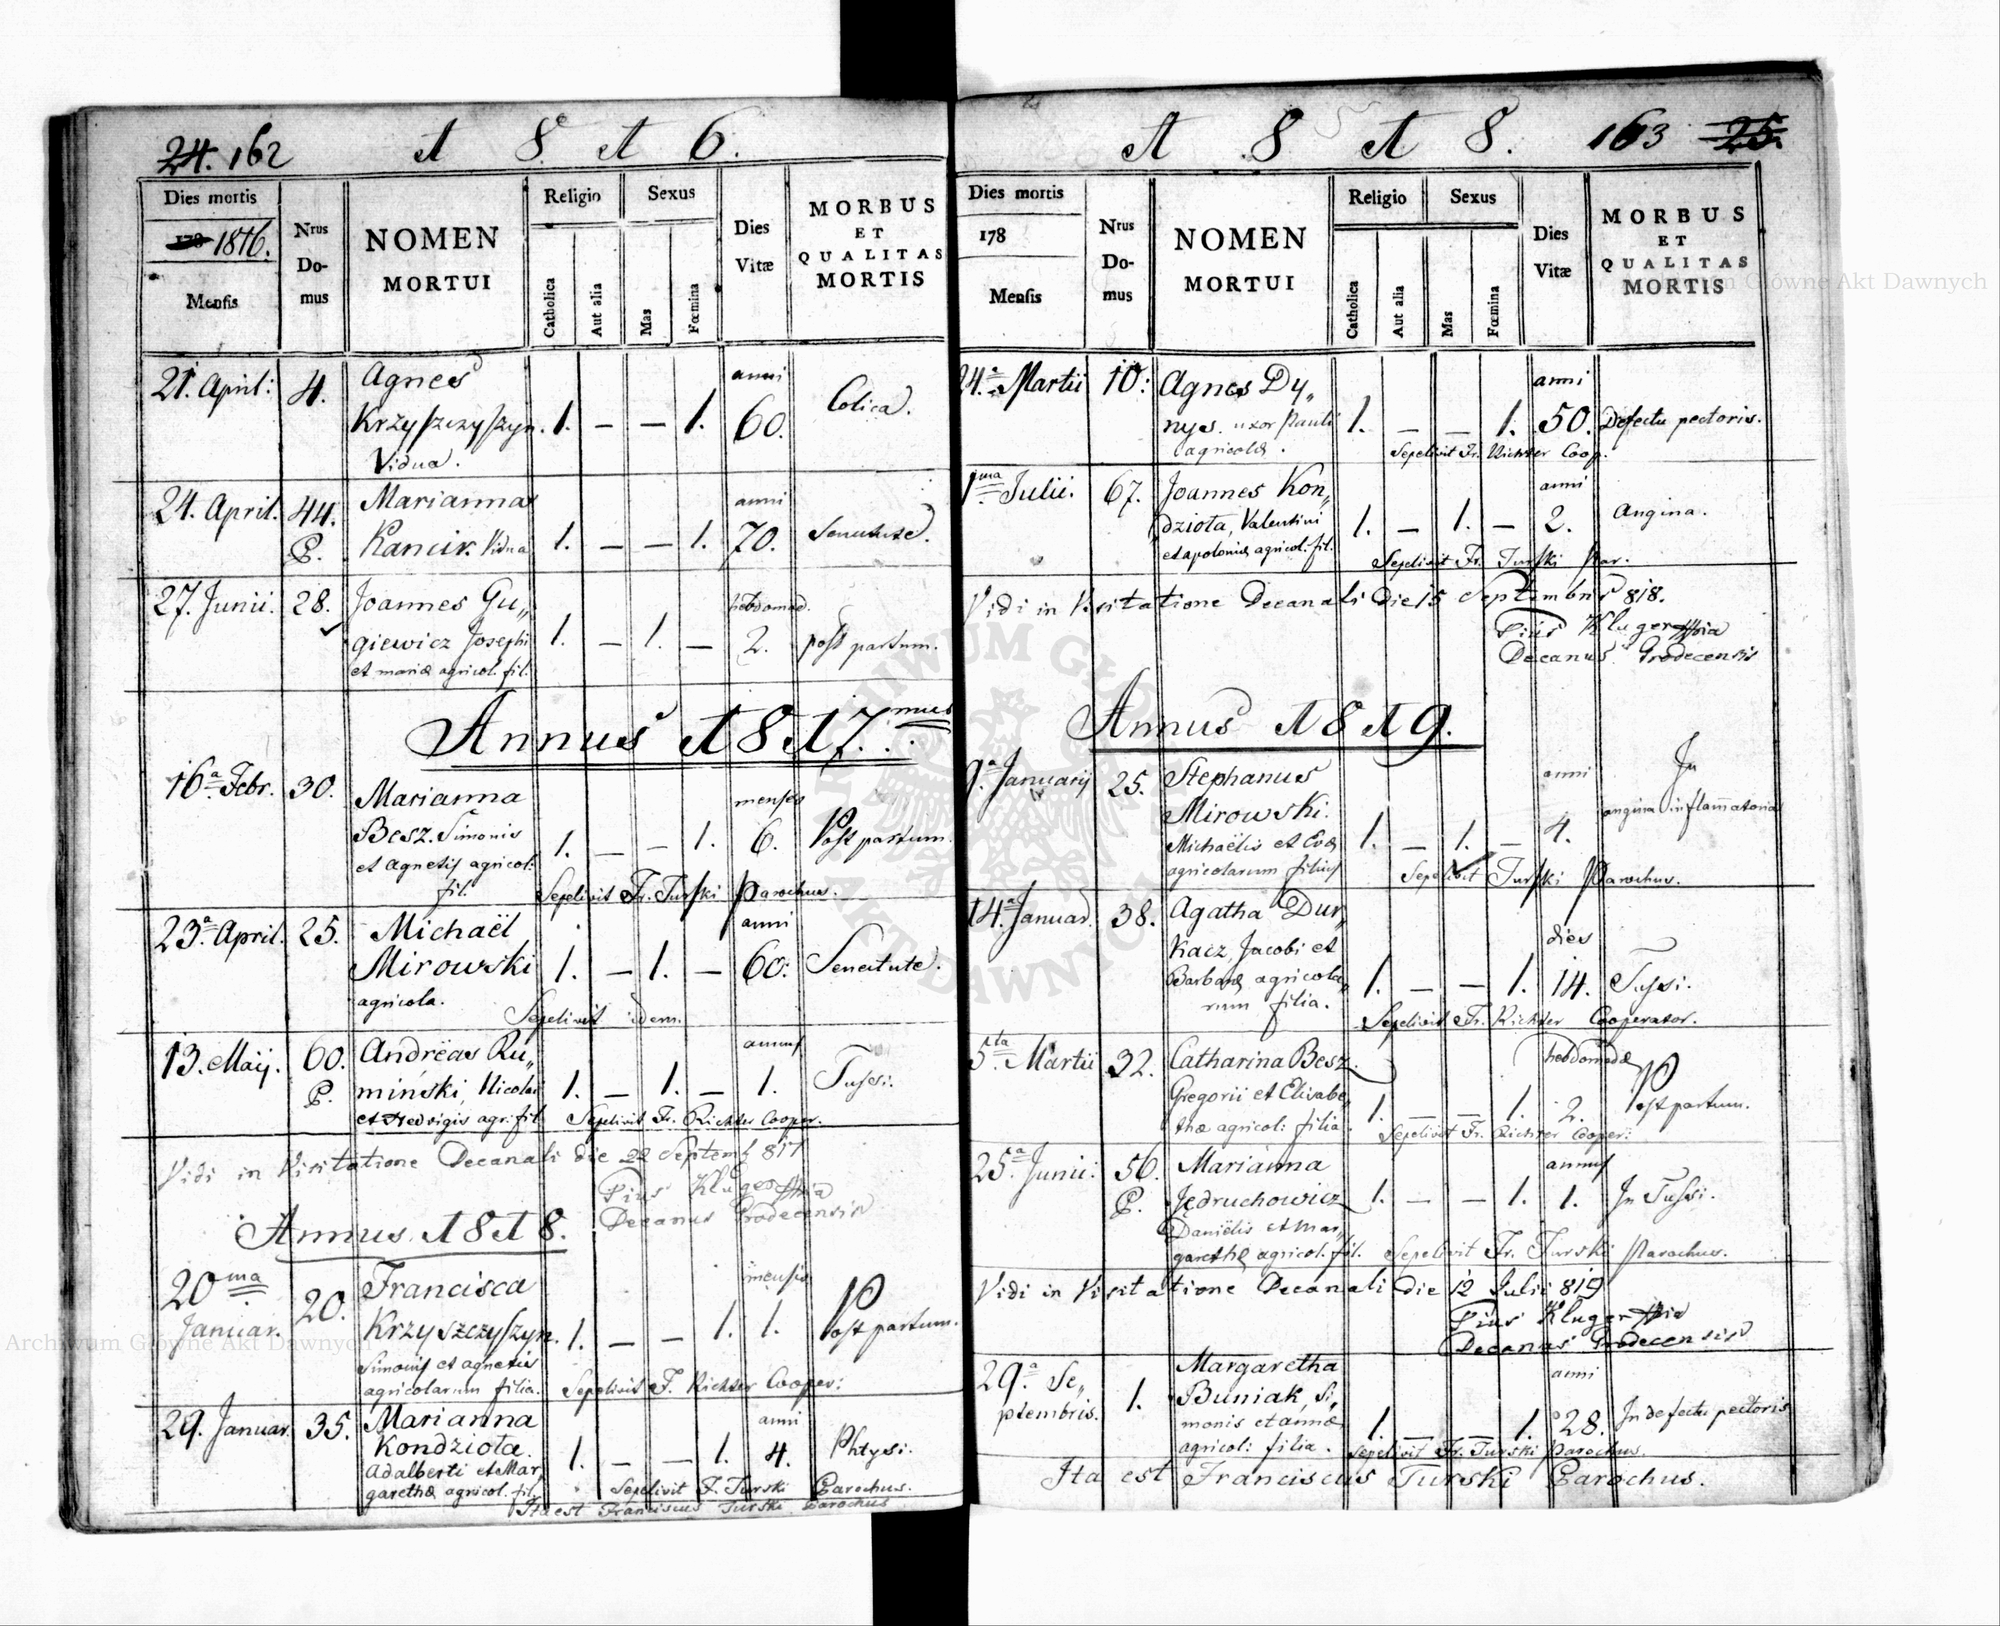 24. 162
1 8 1 6.
Dies mortis
178 1816.
Mensis
Nrus
Do-
mus
NOMEN
MORTUI
Religio
Catholica
Aut alia
Sexus
Mas
Fœmina
Dies
Vitæ
MORBUS
ET
QUALITAS
MORTIS
21. April: 4. Agnes anni
Krzyszczyszyn. 1. — — 1. 60. Colica.
Vidua.
24. April. 44. Marianna anni
P. Kancir Vidua 1. — — 1. 70. Senectute.
27. Junii. 28. Joannes Gu„ hebdomad.
giewicz Josephi 1. — 1. — 2. post partum.
et mariæ agricol. fil.
Annus 1817.mus
16a Febr. 30. Marianna menses
Besz. Simonis 1. — — 1. 6. Post partum.
et Agnetis agricol:
fil. Sepelivit Fr. Turski Parochus.
23a April. 25. Michaël anni
Mirowski 1. — 1. — 60. Senectute.
agricola.
Sepelivit idem.
13. Maij. 60. Andrëas Ru„ annus
P. minski, Nicolai 1. — 1. — 1. Tussi.
et Hedvigis agr. fil. Sepelivit Fr. Richter Cooper.
Vidi in Visitatione Decanali die 22 Septemb 817
Pius Kluger mpia
Decanus Grodecensis
Annus 1818.
20ma 20. Francisca mensis
Januar. Krzyszczyszyn. 1. — — 1. 1. Post partum.
Simonis et agnetis
agricolarum filia. Sepelivit F. Richter Cooper:
29. Januar. 35. Marianna anni
Kondziota. 1. — — 1. 4. Phtysi.
Adalberti et Mar„
garethæ agricol. fil. Sepelivit F. Turski Parochus.
Ita est Franciscus Turski Parochus
1 8 1 8.
163 25
Dies mortis
178
Mensis
Nrus
Do-
mus
NOMEN
MORTUI
Religio
Catholica
Aut alia
Sexus
Mas
Fœmina
Dies
Vitæ
MORBUS
ET
QUALITAS
MORTIS
24.a Martii 10: Agnes Dy„ anni
nyes. uxor Pauli 1. — — 1. 50. Defectu pectoris.
agricolæ. Sepelivit Fr. Richter Coop.
1ma Julii. 67. Joannes Kon„ anni
dziota, Valentini 1. — 1. — 2. Angina.
et apoloniæ agricol. fil. Sepelivit Fr. Turski Par.
Vidi in Visitatione Decanali die 15 Septembris 818.
Pius Kluger mpia
Decanus Grodecensis
Annus 1819.
9.a Januarij 25. Stephanus anni In
Mirowski. 1. — 1. — 4. angina inflamatoria
Michaëlis et Evæ
agricolarum filius Sepelivit Turski Parochus.
14.a Januar. 38. Agatha Dur„ dies
kacz, Jacobi et 1. — — 1. 14. Tussi.
Barbaræ agricola„
rum filia. Sepelivit Fr. Richter Cooperator.
5.ta Martii 32. Catharina Besz hebdomadæ
Gregorii et Elisabe„ 1. — — 1. 2. Post partum.
thæ agricol: filia. Sepelivit Fr. Richter Cooper:
25.a Junii: 56. Marianna annus
P. Jędruchowicz 1. — — 1. 1. In Tussi.
Daniëlis et Mar„
garethæ agricol. fil. Sepelivit Fr. Turski Parochus.
Vidi in Visitatione Decanali die 12 Julii 819
Pius Kluger mpia
Decanus Grodecensis
29.a Se„ 1. Margaretha anni
ptembris. Buniak, Si„ 1. — — 1. 28. In defectu pectoris
monis et annæ
agricol: filia. Sepelivit Fr. Turski Parochus.
Ita est Franciscus Turski Parochus.
Archiwum Główne Akt Dawnych
ARCHIWUM GŁÓWNE AKT DAWNYCH